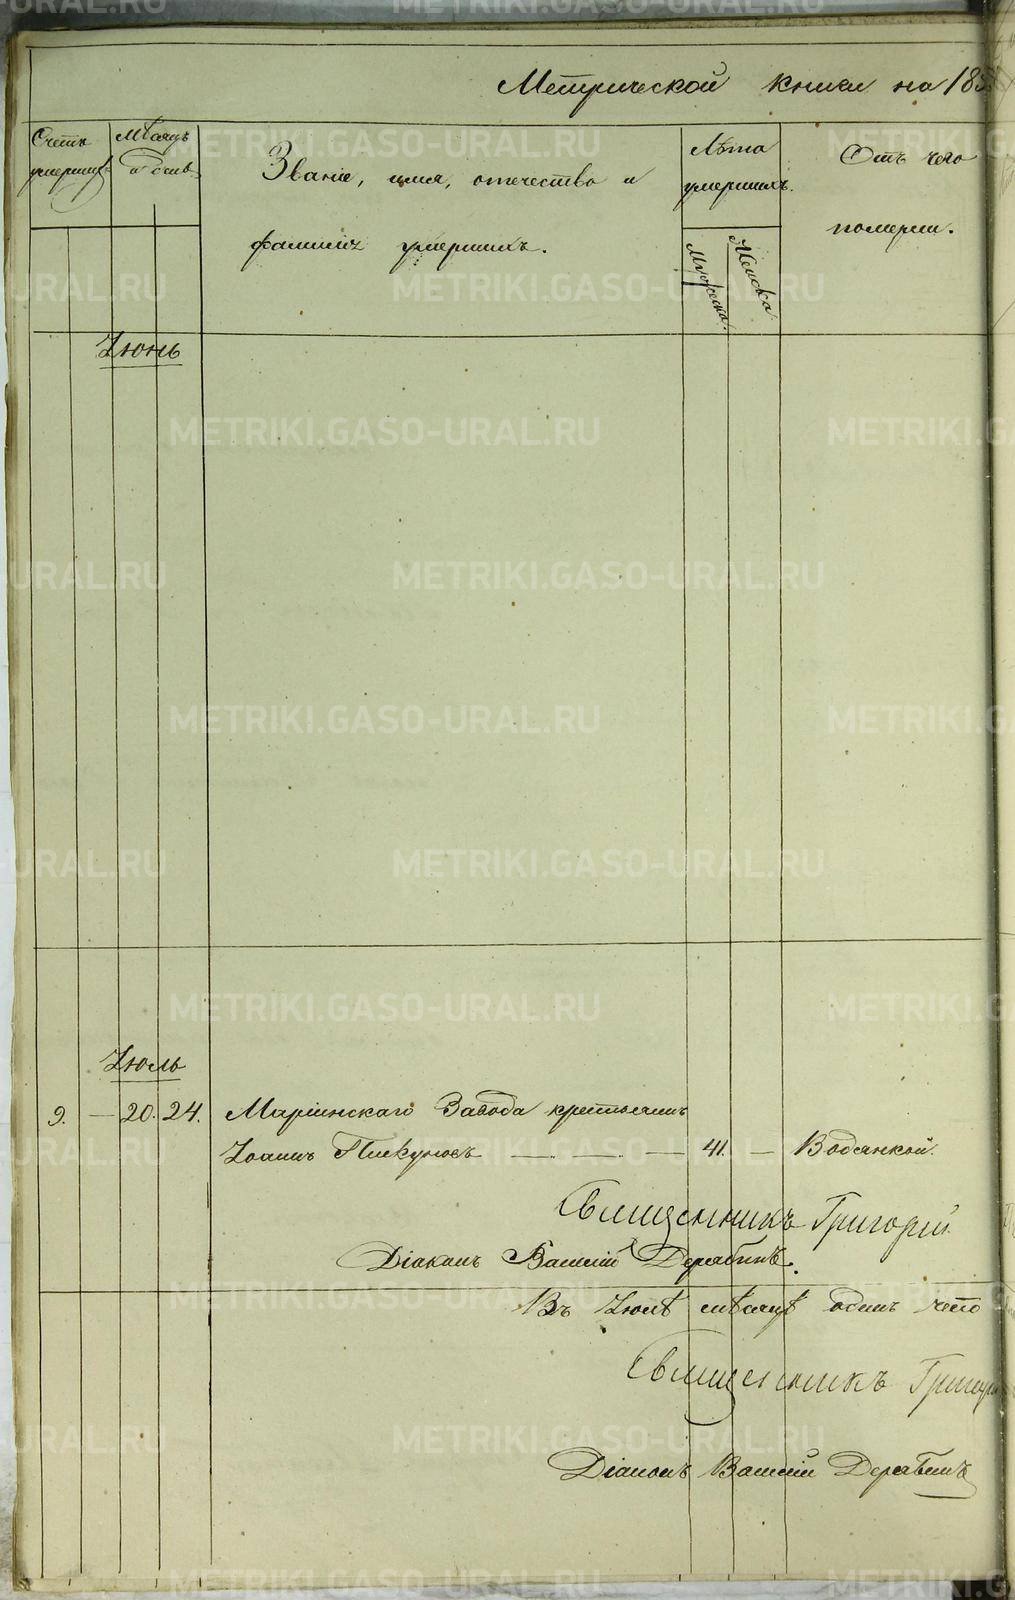 Метрической книги на 185
Счетъ умершихъ
Мѣсяцъ и день
Званіе, имя, отечество и
фамилія умершихъ.
Лѣта
умершихъ.
Мужеска.
Женска.
Отъ чего
померли.
Іюнь
Іюль
9. — 20. 24. Маріинскаго Завода крестьянинъ
Іоаннъ Пискуновъ — — — 41. — Водянкой.
Священникъ Григорій
Діаконъ Василій Дерябинъ.
Въ Іюлѣ мѣсяцѣ одинъ чело
Священникъ Григорій
Діаконъ Василій Дерябинъ
METRIKI.GASO-URAL.RU